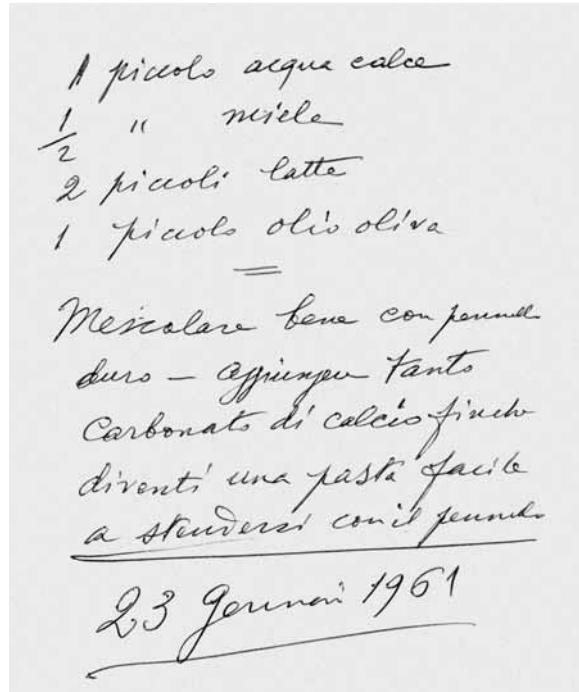 1 piccolo acqua calce
1/2 " miele
2 piccoli latte
1 piccolo olio oliva
=
Mescolare bene con pennello
duro — aggiungere tanto
Carbonato di calcio finche
diventi una pasta facile
a stendersi con il pennello
23 Gennaio 1961